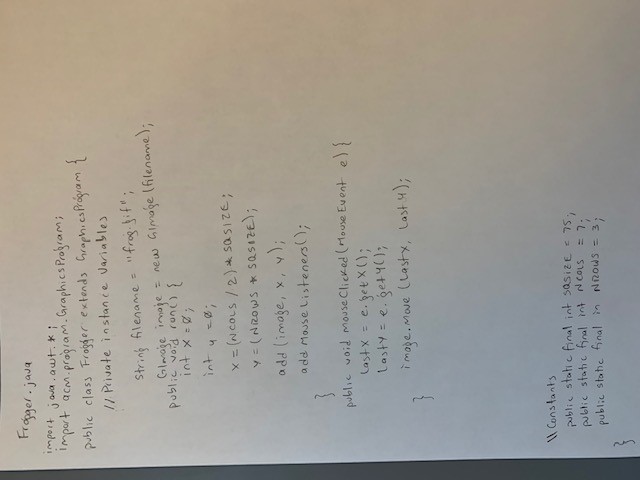 Frogger.java
import java.awt.*;
import acm.program.GraphicsProgram;
public class Frogger extends GraphicsProgram {
// Private instance variables
String filename = "frog.gif";
GImage image = new GImage(filename);
public void run() {
int x = 0;
int y = 0;
x = (NCOLS / 2) * SQSIZE;
y = (NROWS * SQSIZE);
add (image, x, y);
add MouseListeners();
}
public void mouseClicked (MouseEvent e) {
lastX = e.getX();
lastY = e.getY();
image.move (lastx, lasty);
}
\\ Constants
public static final int SQSIZE = 75;
public static final int NCOLS = 7;
public static final in NROWS = 3;
}